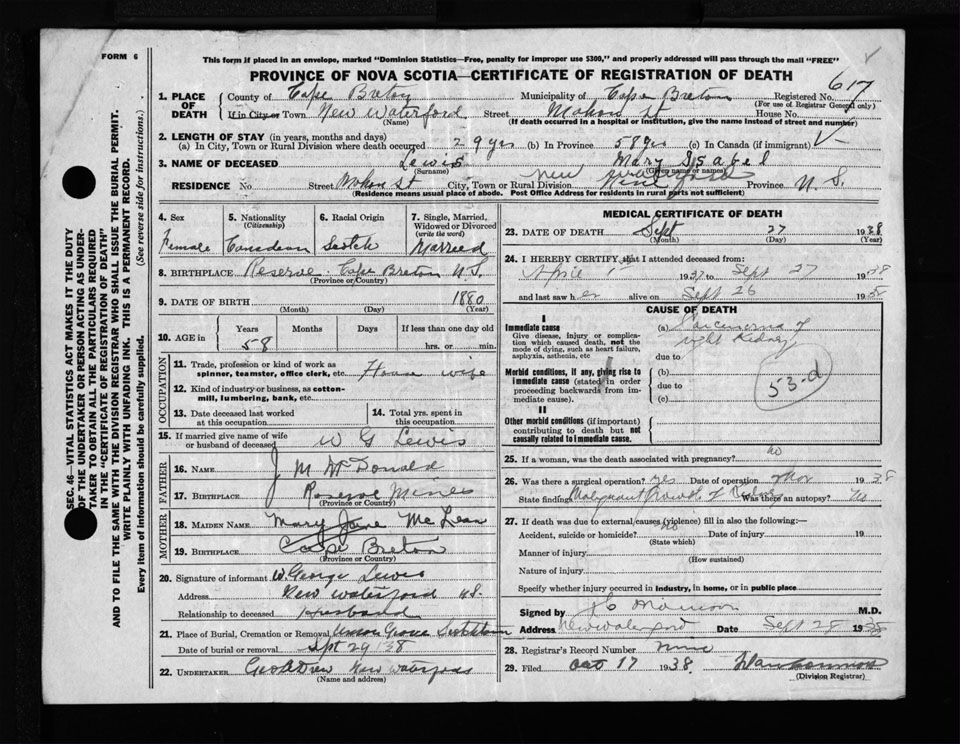 FORM 6
This form if placed in an envelope, marked "Dominion Statistics—Free, penalty for improper use $300," and properly addressed will pass through the mail "FREE"
PROVINCE OF NOVA SCOTIA—CERTIFICATE OF REGISTRATION OF DEATH
617
1. PLACE OF DEATH County of Cape Breton Municipality of Cape Breton Registered No.
(For use of Registrar General only)
If in City or Town New Waterford Street House No.
(Name) (If death occurred in a hospital or institution, give the name instead of street and number)
2. LENGTH OF STAY (in years, months and days)
(a) In City, Town or Rural Division where death occurred 29 yrs (b) In Province 58 yrs (c) In Canada (if immigrant)
3. NAME OF DECEASED Lewis Mary Isabel
(Surname) (Given name or names)
RESIDENCE No. Street City, Town or Rural Division New Waterford Province N. S.
(Residence means usual place of abode. Post Office Address for residents in rural parts not sufficient)
4. Sex Female
5. Nationality (Citizenship) Canadian
6. Racial Origin Scotch
7. Single, Married, Widowed or Divorced (write the word) Married
8. BIRTHPLACE Reserve Cape Breton N.S.
(Province or Country)
9. DATE OF BIRTH 1880
(Month) (Day) (Year)
10. AGE in Years Months Days If less than one day
58 hrs. or min.
OCCUPATION
11. Trade, profession or kind of work as spinner, teamster, office clerk, etc. House wife
12. Kind of industry or business, as cotton-mill, lumbering, bank, etc.
13. Date deceased last worked at this occupation
14. Total yrs. spent in this occupation
15. If married give name of wife or husband of deceased W G Lewis
FATHER
16. NAME J M McDonald
17. BIRTHPLACE Reserve Mines
(Province or Country)
MOTHER
18. MAIDEN NAME Mary Jane McLean
19. BIRTHPLACE Cape Breton
(Province or Country)
20. Signature of informant W George Lewis
Address New Waterford N.S.
Relationship to deceased Husband
21. Place of Burial, Cremation or Removal Union Grove
Date of burial or removal Spt 29/38
22. UNDERTAKER New Waterford
(Name and address)
MEDICAL CERTIFICATE OF DEATH
23. DATE OF DEATH Sept 27 1938
(Month) (Day) (Year)
24. I HEREBY CERTIFY that I attended deceased from:
April 1st 1937 to Sept 27 1938
and last saw her alive on Sept 26 1938
CAUSE OF DEATH
I
Immediate cause
Give disease, injury or complication which caused death, not the mode of dying, such as heart failure, asphyxia, asthenia, etc
(a) Sarcinoma of
right Kidney
due to
Morbid conditions, if any, giving rise to immediate cause (stated in order proceeding backwards from immediate cause).
(b)
due to
(c)
53-d
II
Other morbid conditions (if important) contributing to death but not causally related to immediate cause.
25. If a woman, was the death associated with pregnancy? no
26. Was there a surgical operation? yes Date of operation Mar 1938
State findings Malignant Growth of Kidney Was there an autopsy? No
27. If death was due to external causes (violence) fill in also the following:—
Accident, suicide or homicide? no Date of injury 19
(State which)
Manner of injury
(How sustained)
Nature of injury
Specify whether injury occurred in industry, in home, or in public place
Signed by M.D.
Address New Waterford Date Sept 28 1938
28. Registrar's Record Number nine
29. Filed Oct 17 1938
(Division Registrar)
SEC. 46—VITAL STATISTICS ACT MAKES IT THE DUTY
OF THE UNDERTAKER OR PERSON ACTING AS UNDER-
TAKER TO OBTAIN ALL THE PARTICULARS REQUIRED
IN THE "CERTIFICATE OF REGISTRATION OF DEATH"
AND TO FILE THE SAME WITH THE DIVISION REGISTRAR WHO SHALL ISSUE THE BURIAL PERMIT.
WRITE PLAINLY WITH UNFADING INK. THIS IS A PERMANENT RECORD.
Every item of information should be carefully supplied. (See reverse side for instructions.)